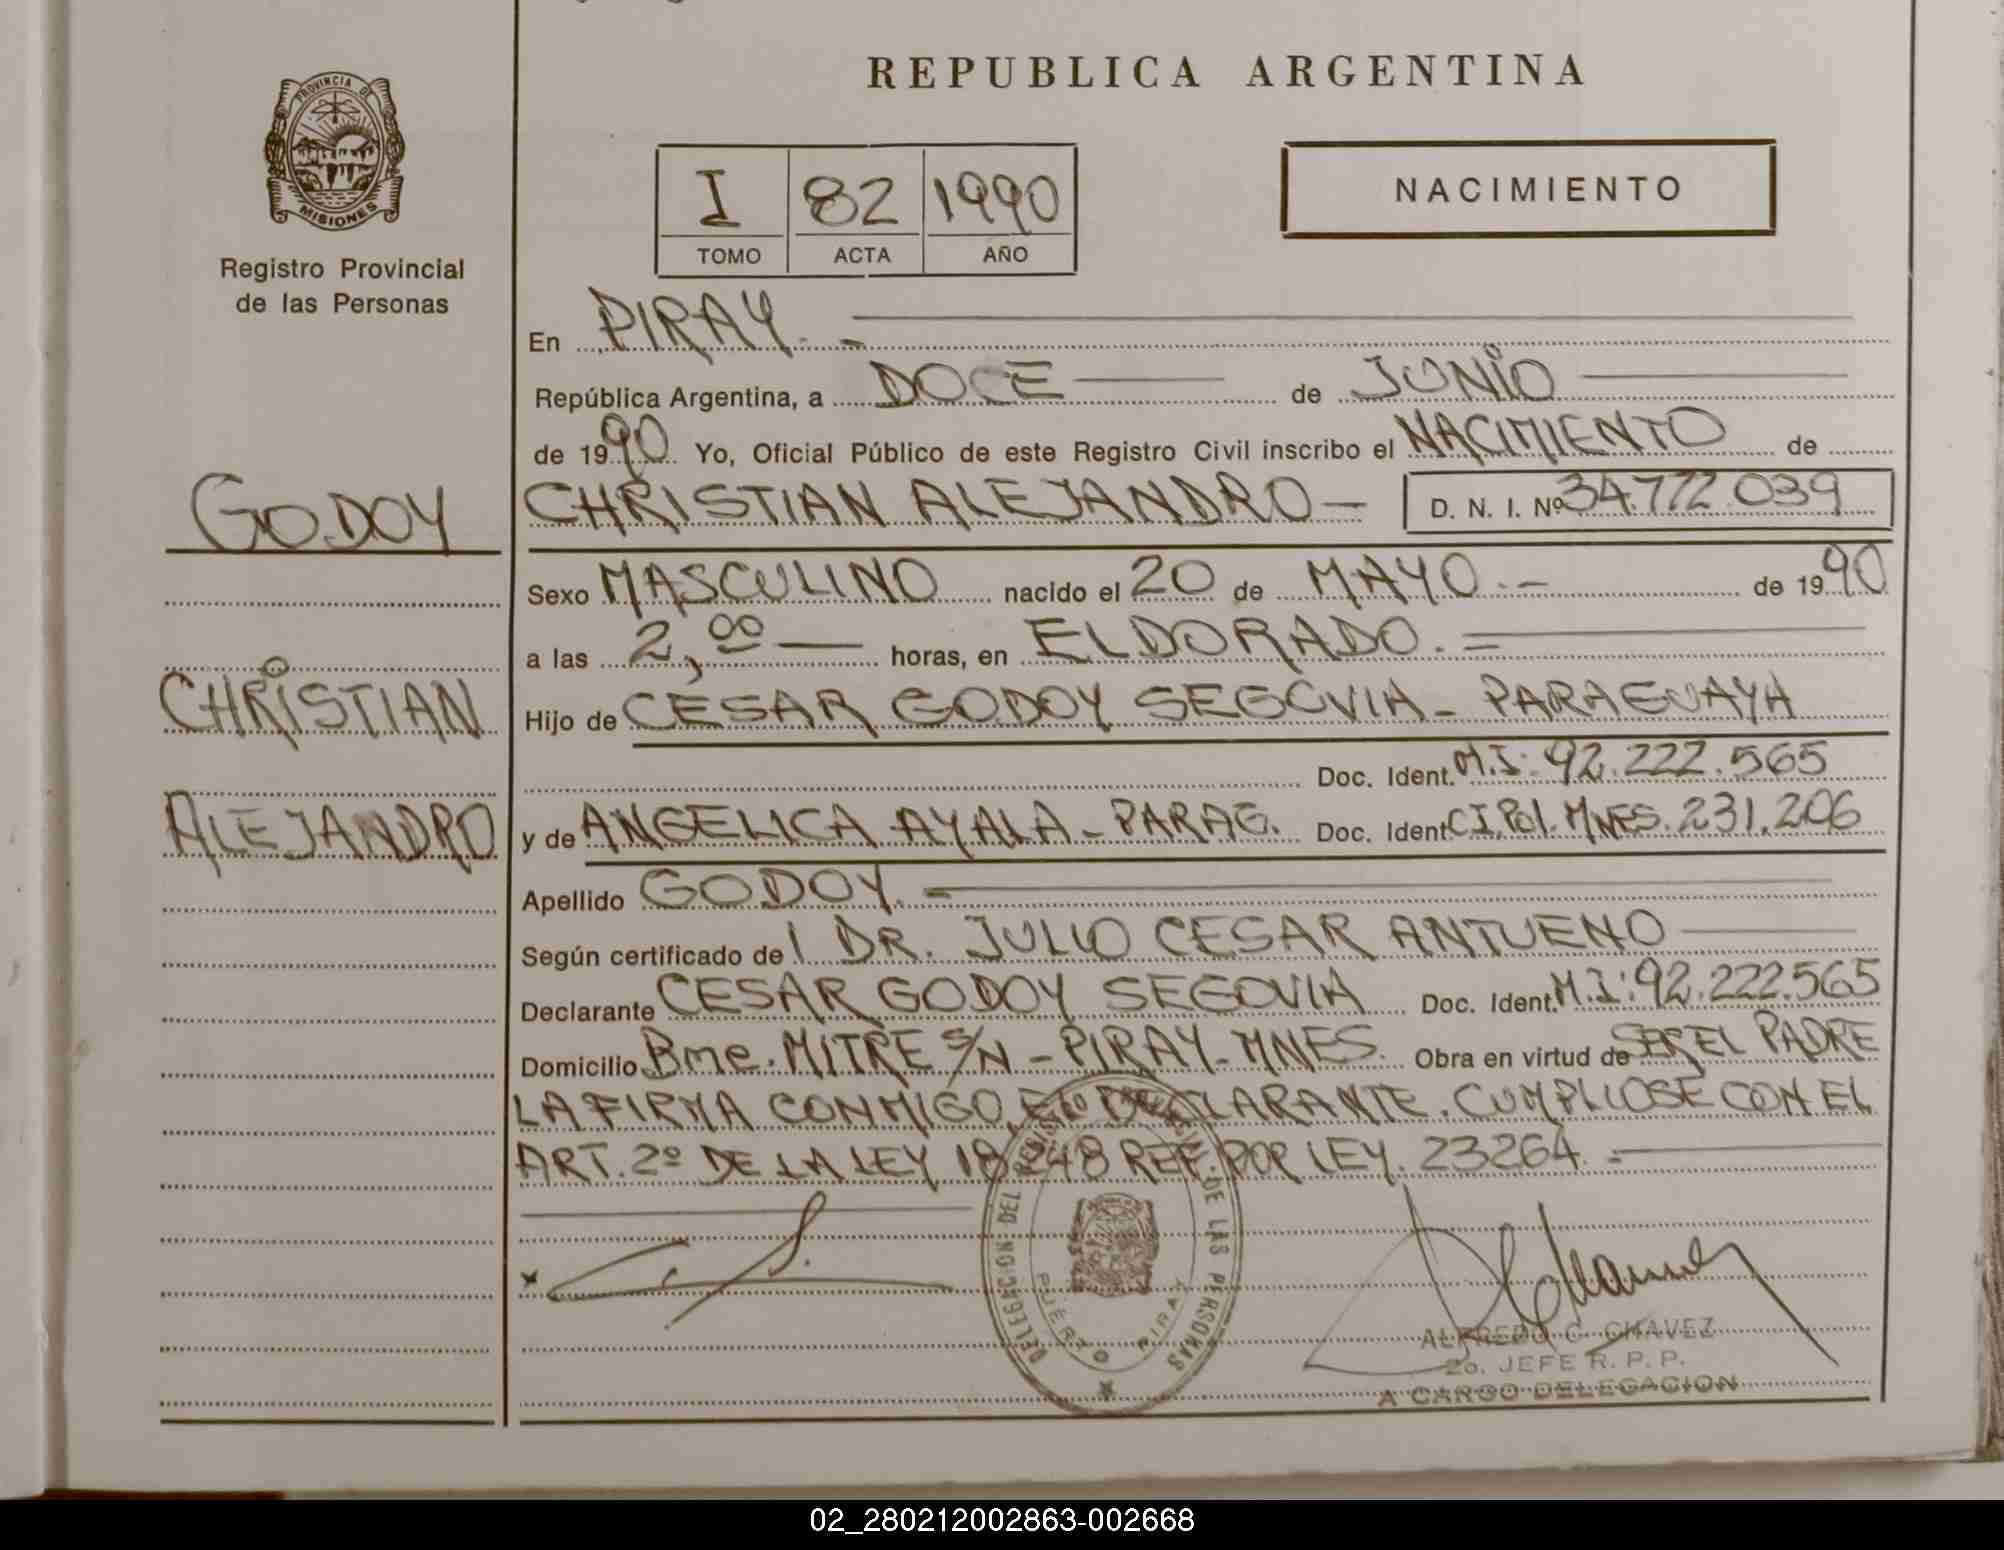 REPUBLICA ARGENTINA
PROVINCIA DE
MISIONES
Registro Provincial
de las Personas
I 82 1990
TOMO ACTA AÑO
NACIMIENTO
En PIRAY.-
República Argentina, a DOCE de JUNIO
de 1990 Yo, Oficial Público de este Registro Civil inscribo el NACIMIENTO de
GODOY
CHRISTIAN ALEJANDRO- D. N. I. Nº 34.772.039
Sexo MASCULINO nacido el 20 de MAYO.- de 1990
a las 2,00 horas, en ELDORADO.=
CHRISTIAN
Hijo de CESAR GODOY SEGOVIA - PARAGUAYA
Doc. Ident. M.I: 92.222.565
ALEJANDRO
y de ANGELICA AYALA - PARAG. Doc. Ident C.I. Pol. MNES. 231.206
Apellido GODOY.-
Según certificado de l DR. JULIO CESAR ANTUENO
Declarante CESAR GODOY SEGOVIA Doc. Ident. M.I: 92.222.565
Domicilio Bme. MITRE S/N - PIRAY - MNES. Obra en virtud de SER EL PADRE
LA FIRMA CONMIGO, EL DECLARANTE. CUMPLIOSE CON EL
ART. 2º DE LA LEY 18248 REF. POR LEY. 23264.=
DELEGACION DEL REGISTRO PROVINCIAL DE LAS PERSONAS
PUERTO PIRAY
ALFREDO C. CHAVEZ
2o. JEFE R. P. P.
A CARGO DELEGACION
02_280212002863-002668